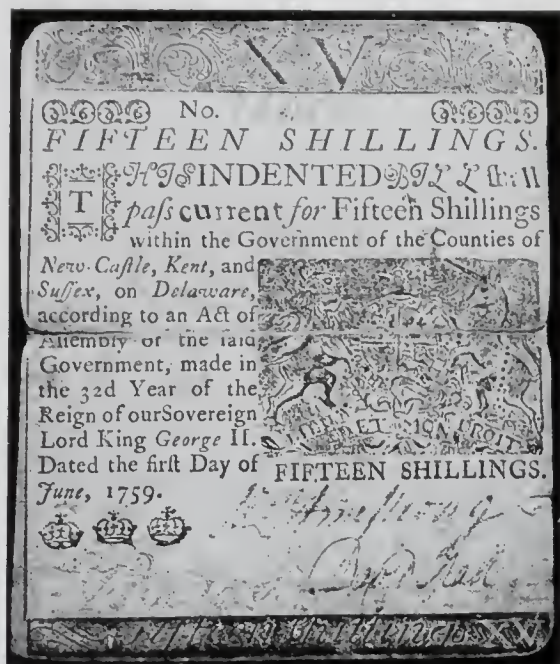 XV
No.
FIFTEEN SHILLINGS.
THIS INDENTED BILL shall
paſs current for Fifteen Shillings
within the Government of the Counties of
New-Caſtle, Kent, and
Suſſex, on Delaware,
according to an Act of
Aſſembly of the ſaid
Government, made in
the 32d Year of the
Reign of ourSovereign
Lord King George II.
Dated the firſt Day of
June, 1759.
DIEU ET MON DROIT
FIFTEEN SHILLINGS.
Fifteen Shillings. XV